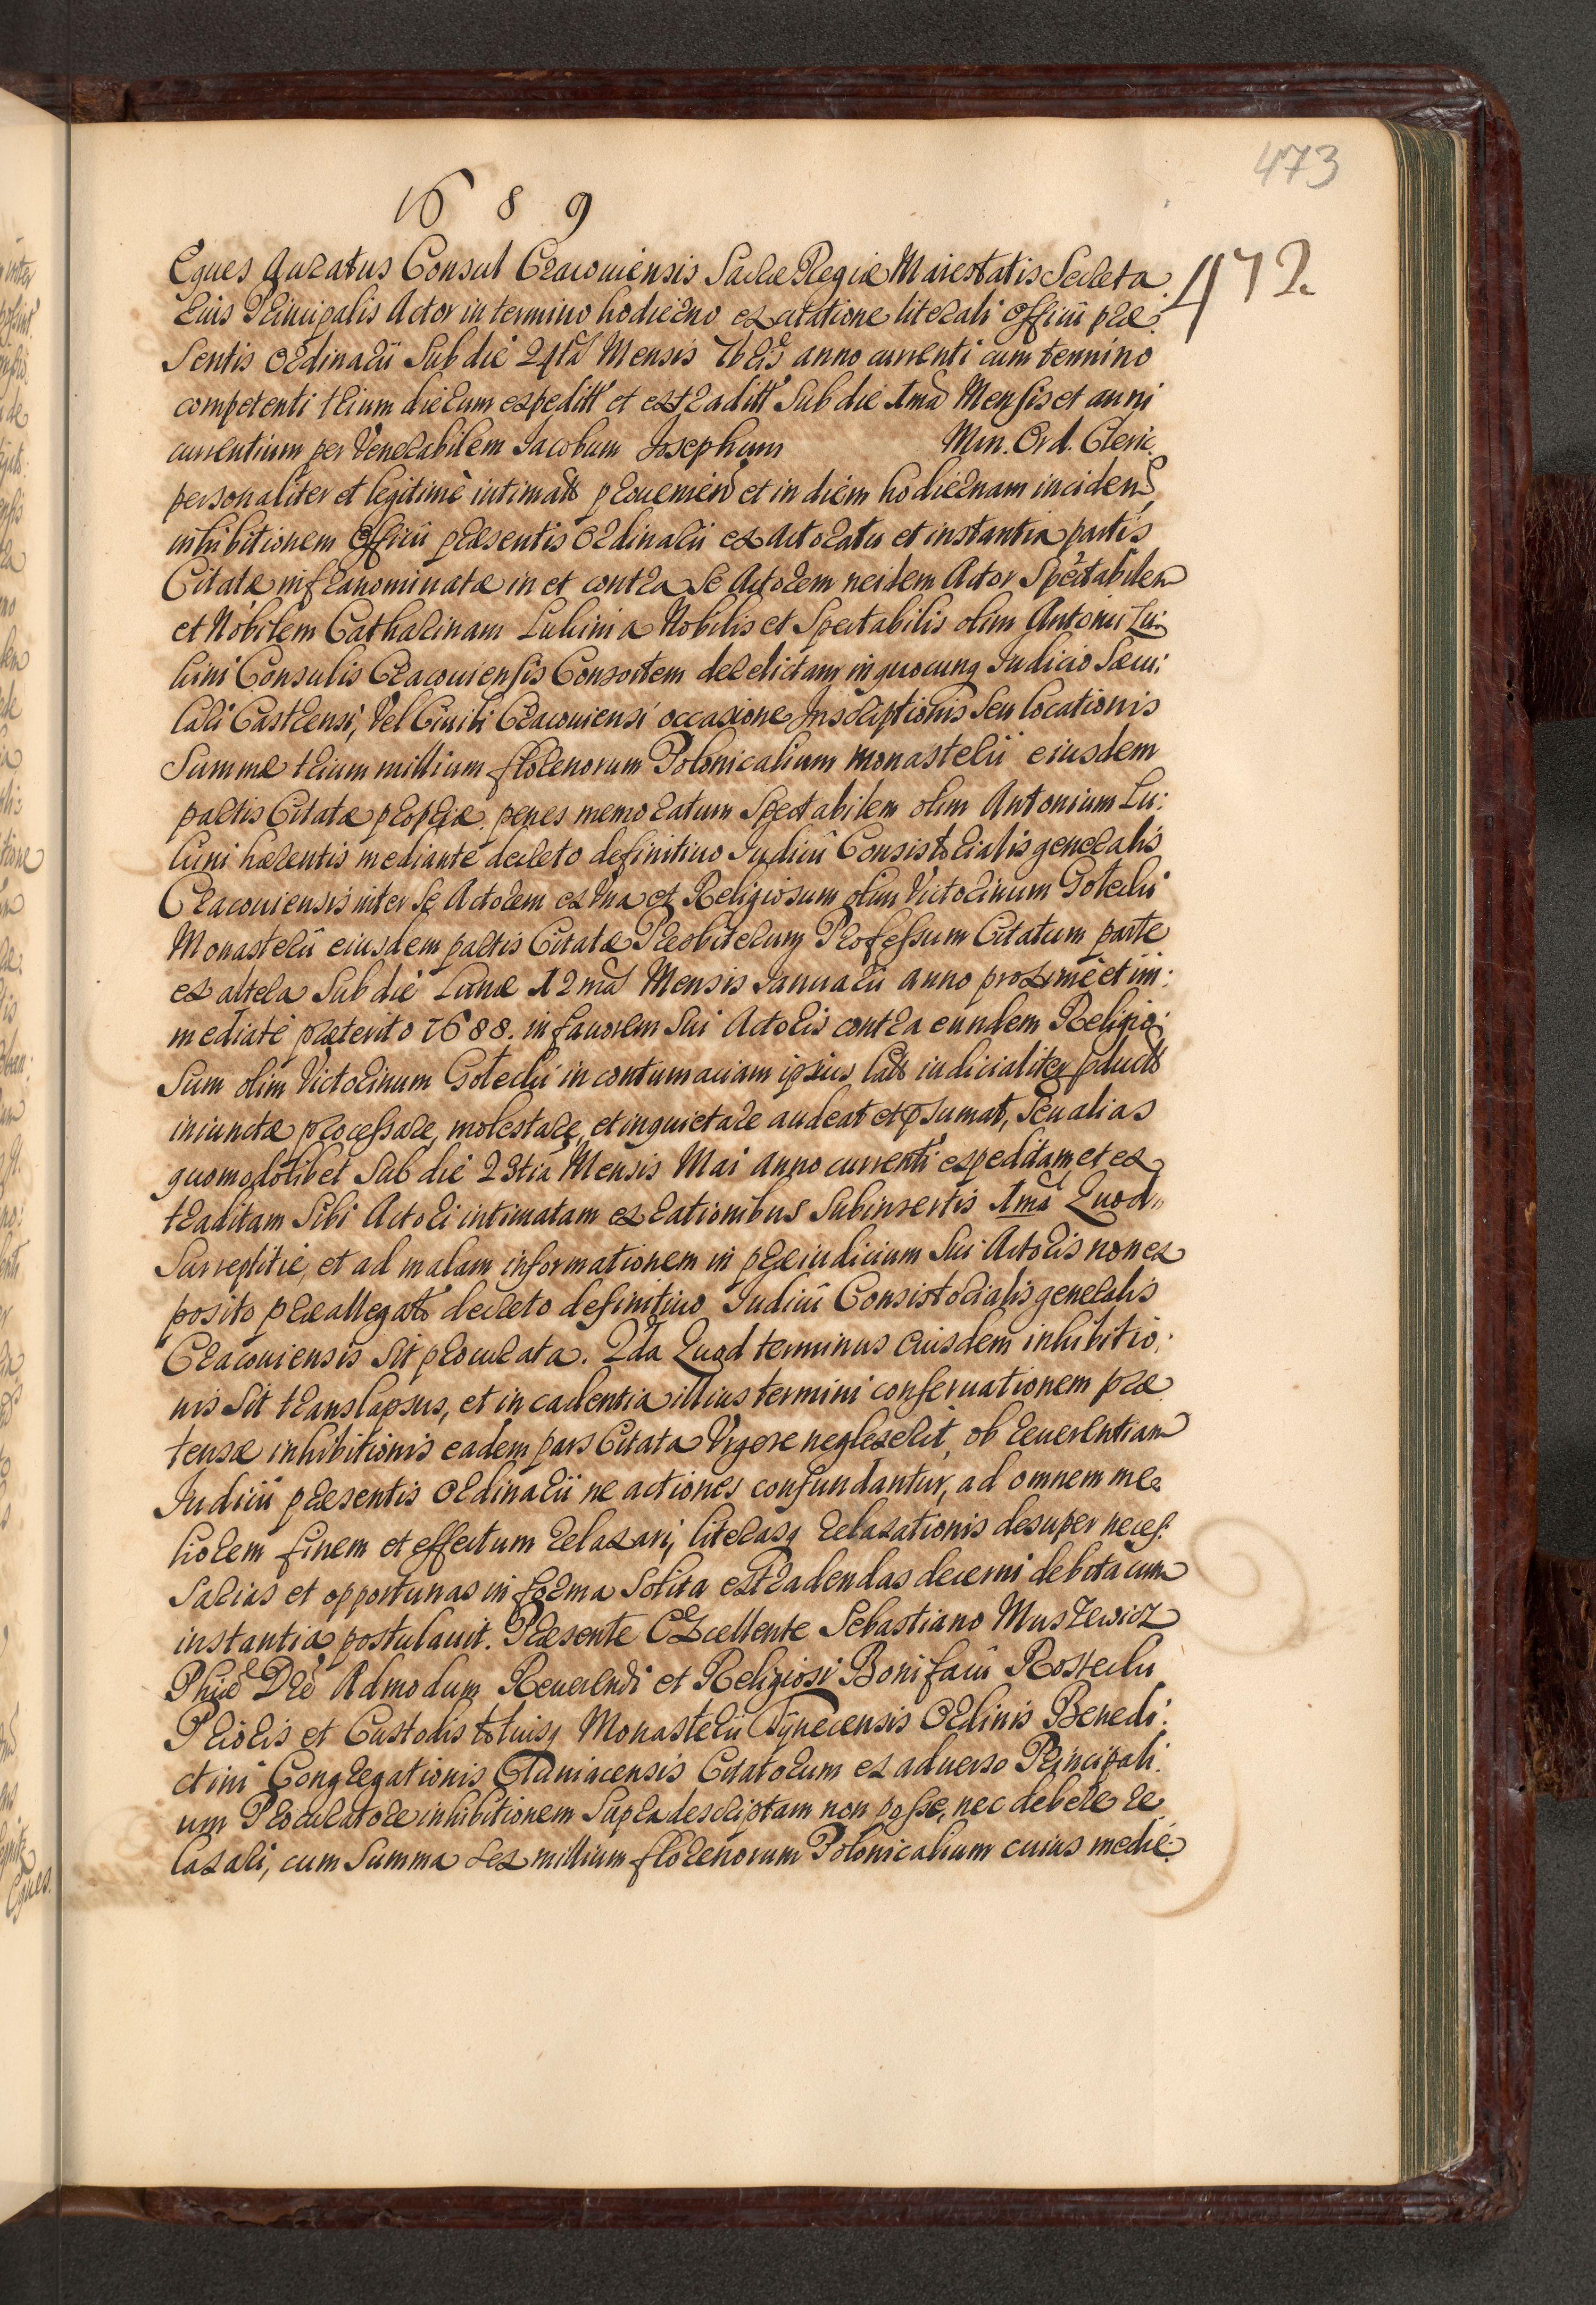 473
1689
472.
Eques Auratus Consul Cracouiensis Sacræ Regiæ Maiestatis Secreta:
rius Principalis Actor in termino hodierno ex citatione literali Officii præ:
sentis Ordinarii sub die 24tâ Mensis 7bris anno currenti cum termino
competenti trium dierum expeditt et extraditt sub die 1mâ Mensis et anni
currentium per Venerabilem Jacobum Josephum Min. Ord. Cleric.
personaliter et legitimè intimatt prouenien et in diem hodiernam inciden,
inhibitionem Officii præsentis Ordinarii ex Actoratu et instantia partis
Citatæ infranominatæ in et contra se Actorem ne idem Actor Spectabilem
et Nobilem Catharinam Lukini a Nobilis et Spectabilis olim Antonii Lu:
kini Consulis Cracouiensis Consortem derelictam in quocunq Judicio Sæcu:
lari Castrensi, Vel Ciuili Cracouiensi occasione Inscriptionis seu locationis
Summæ trium millium florenorum Polonicalium monasterii eiusdem
partis Citatæ propriæ penes memoratum Spectabilem olim Antonium Lu:
kini hærentis mediante decreto definitiuo Judicii Consistorialis generalis
Cracouiensis inter se Actorem ex Vna et Religiosum olim Victorinum Gotecki
Monasterii eiusdem partis Citatæ Præsbiterum Professum Citatum parte
ex altera sub die Lunæ 12mâ Mensis Januarii anno proximè et im:
mediatè præterito 1688. in fauorem sui Actoris contra eundem Religio:
sum olim Victorinum Gotecki in contumaciam ipsius latt iudicialiter pductt
iniunctæ processare, molestare, et inquietare audeat et psumat, seu alias
quomodolibet sub die 23tia Mensis Mai anno currenti expeditam et ex
traditam sibi Actori intimatam ex rationibus subinsertis 1mâ Quod
surreptitiè, et ad malam informationem in præiudicium sui Actoris non ex
posito præallegatt decreto definitiuo Judicii Consistorialis generalis
Cracouiensis sit procurata. 2da Quod terminus eiusdem inhibitio:
nis sit translapsus, et in cadentia illius termini conseruationem præ
tensæ inhibitionis eadem pars Citata Vrgere neglexerit, ob reuerentiam
Judicii præsentis Ordinarii ne actiones confundantur, ad omnem me:
liorem finem et effectum relaxari, literasq relaxationis desuper neces:
sarias et opportunas in forma solita extradendas decerni debita cum
instantia postulauit. Præsente Excellente Sebastiano Muszewicz
Phiæ Dre Admodum Reuerendi et Religiosi Bonifacii Rostecki
Prioris et Custodis totiusq Monasterii Tynecensis Ordinis Benedi:
ctini Congregationis Cluniacensis Citatorum ex aduerso Principali:
um Procuratore inhibitionem supradescriptam non posse, nec debere re:
laxari, cum Summa sex millium florenorum Polonicalium cuius medie: